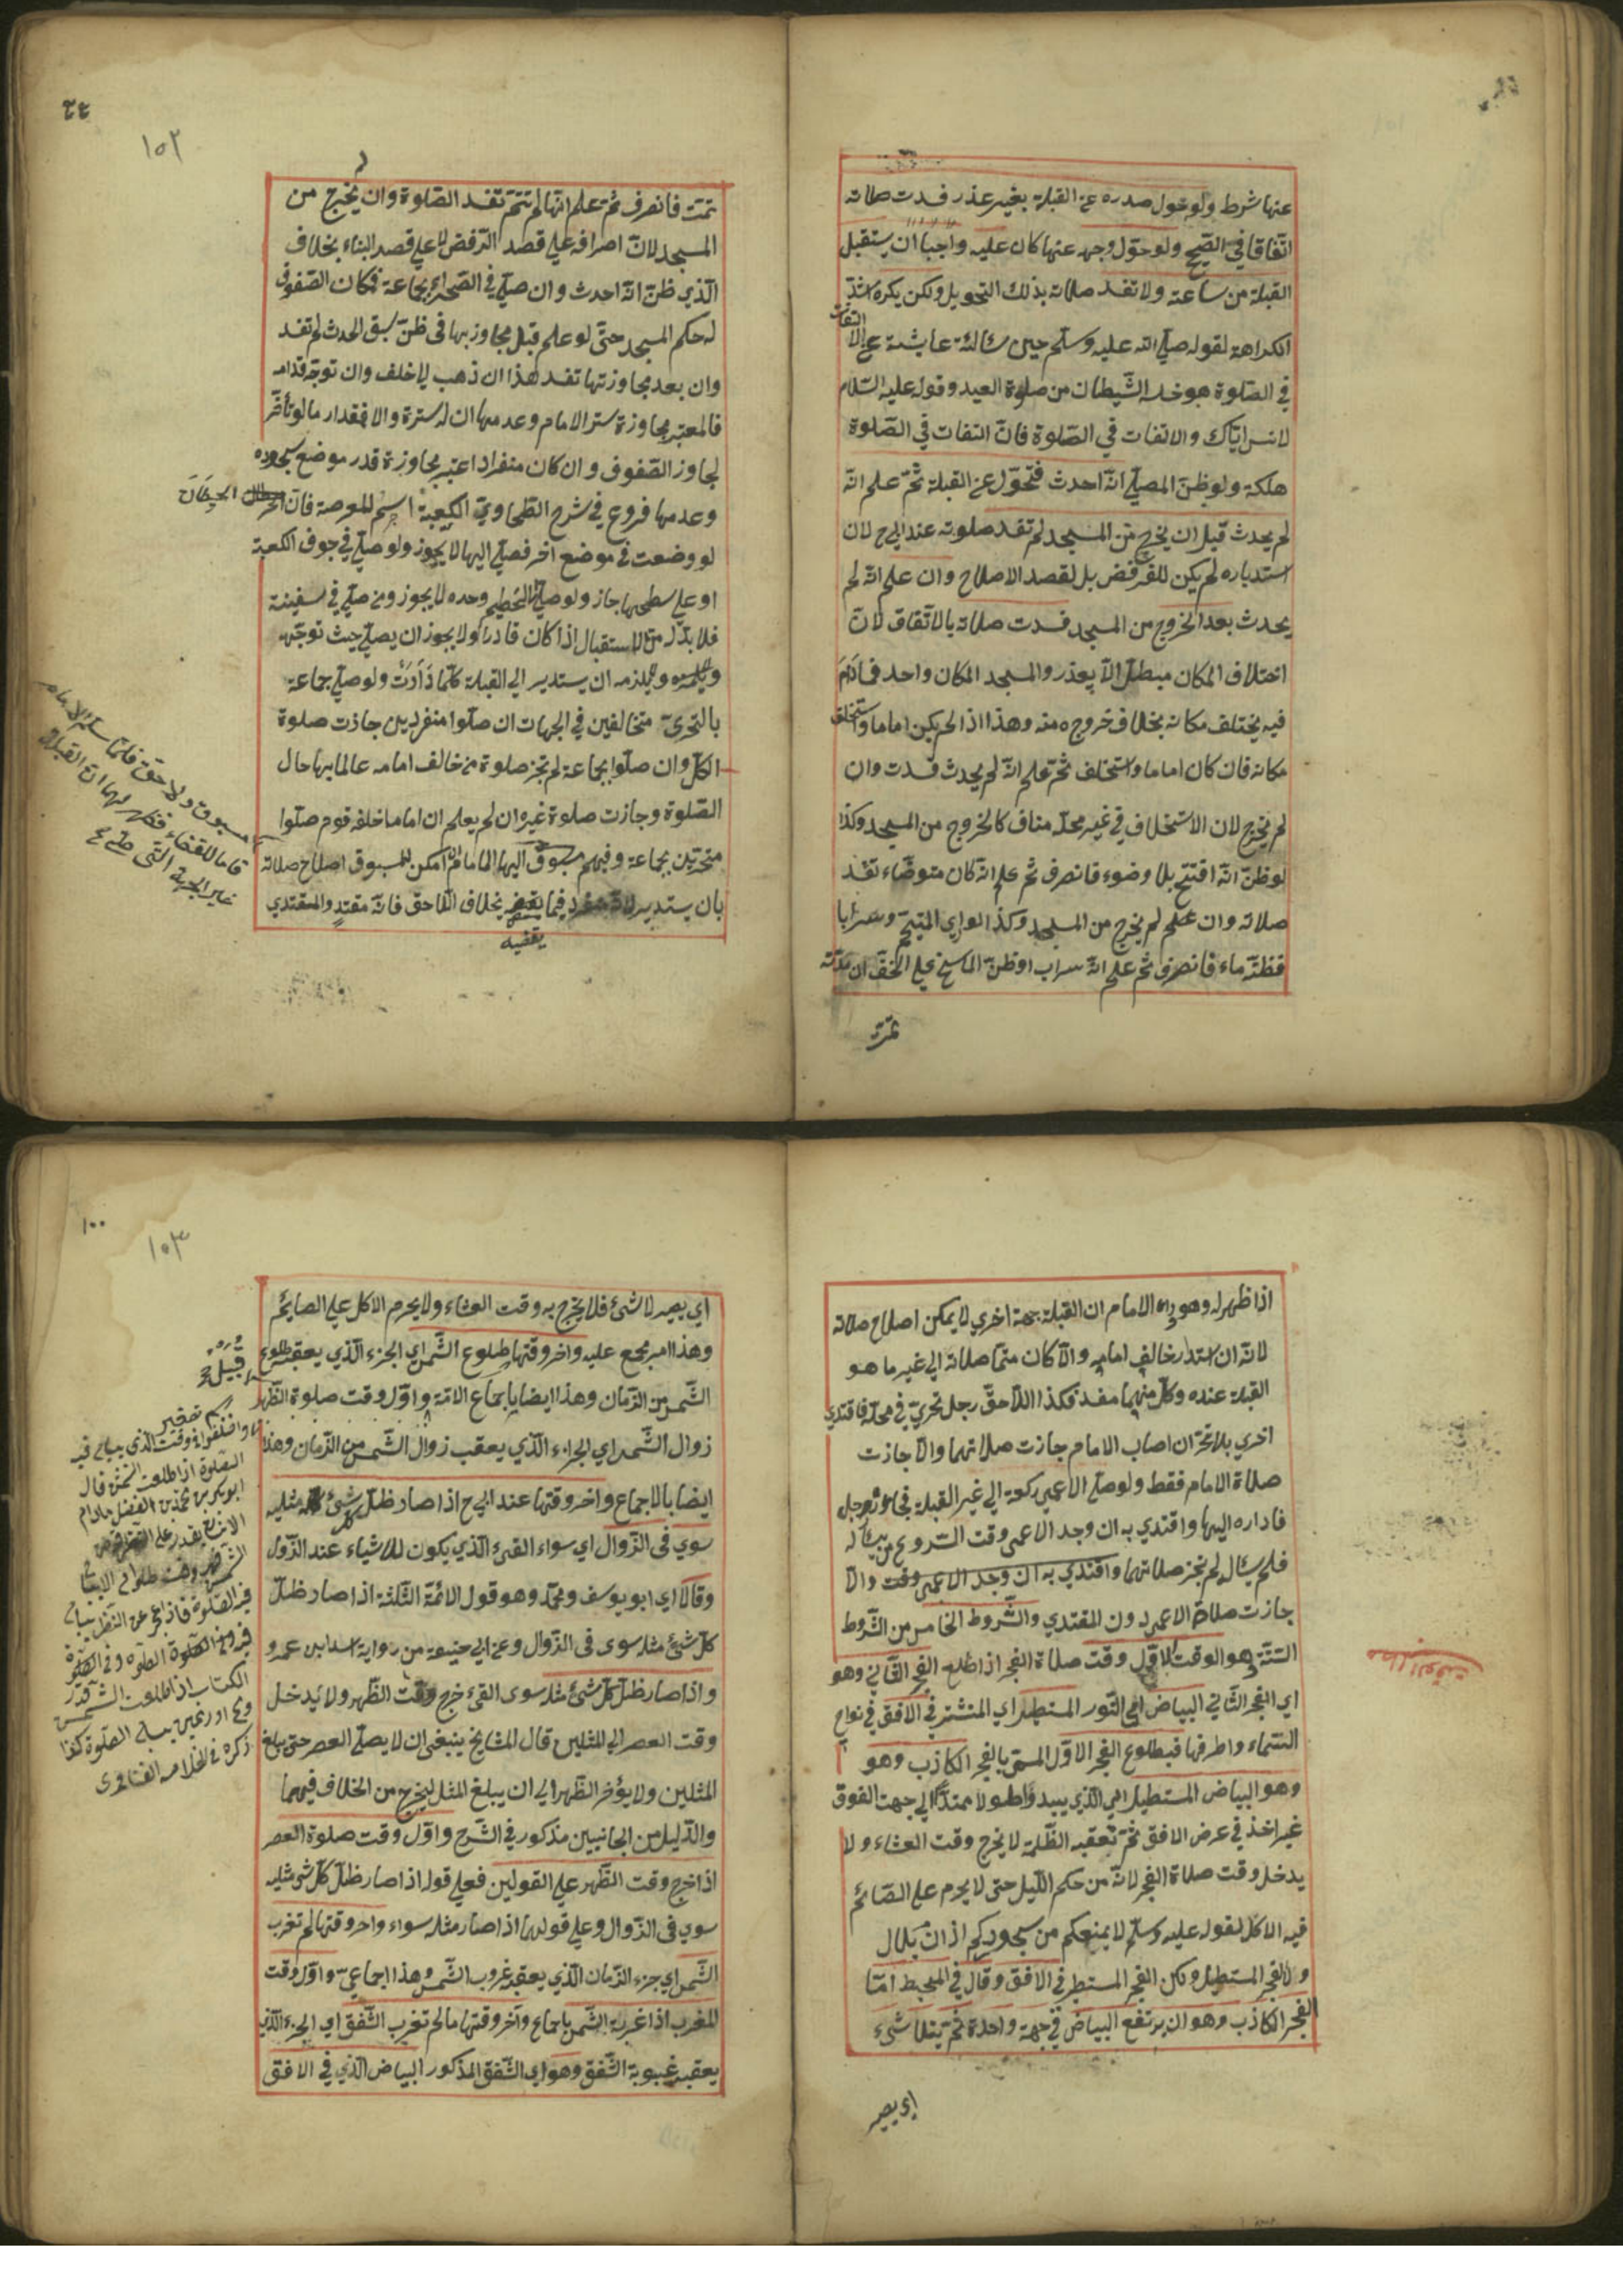 عنها شرط ولو حول صدره عن القبلة بغير عذر فسدت صلاته
اتّفاقا في الصّحيح ولو حوّل وجهه عنها كان عليه واجبا ان يستقبل
القبلة من ساعته ولا تفسد صلاته بذلك التحويل ولكن يكره اشدّ
الكراهة لقوله صلّي الله عليه وسلّم حين سألته عايشة عن الالتفات
في الصّلوة هو خلسة الشّيطان من صلوة العبد وقوله عليه السّلام
لانس ايّاك والالتفات في الصّلوة فانّ التفات في الصّلوة
هلكة ولو ظنّ المصلّي انّه احدث فتحوّل عن القبلة ثمّ علم انّه
لم يحدث قبل ان يخرج من المسجد لم تفسد صلوته عند ابي ح لان
استدباره لم يكن للرفض بل لقصد الاصلاح وان علم انّه لم
يحدث بعد الخروج من المسجد فسدت صلاته بالاتّفاق لانّ
اختلاف المكان مبطل الّا بعذر والمسجد المكان واحد فمادام
فيه يختلف مكانه بخلاف خروجه منه وهذا اذا لم يكن اماما واستخلف
مكانه فان كان اماما واستخلف ثمّ علم انّه لم يحدث فسدت وان
لم يخرج لان الاستخلاف في غير محلّه مناف كالخروج من المسجد وكذا
لو ظنّ انّه افتتح بلا وضوء فانصرف ثم علم انّه كان متوضّاء تفسد
صلاته وان علم لم يخرج من المسجد وكذا لو راي المتيمّم سرابا
فظنّه ماء فانصرف ثم علم انّه سراب او ظنّ الماسح علي الخفّ ان مدّته
تمّت
١٠٢
تمّت فانصرف ثمّ علم انّها لم تتمّ تفسد الصّلوة وان لم يخرج من
المسجد لانّ انصرافه علي قصد الرفض لا علي قصد البناء بخلاف
الّذي ظنّ انّه احدث وان صلّي في الصّحراء بجماعة فمكان الصّفوف
له حكم المسجد حتّى لو علم قبل مجاوزتها في ظنّ سبق الحدث لم تفسد
وان بعد مجاوزتها تفسد هذا ان ذهب الي خلف وان توجّه قدّامه
فالمعتبر مجاوزة ستر الامام وعدمها ان له سترة والا فمقدار ما لو تأخّر
لجاوز الصّفوف وان كان منفردا اعتبر مجاوزة قدر موضع سجوده
وعدمها فروع في شرح الطّحاويّ الكعبة اسم للعرصة فانّ الحيطان
لو وضعت في موضع اخر فصلّي اليها لا يجوز ولو صلّي في جوف الكعبة
او علي سطحها جاز ولو صلّي الي الحطيم وحده لا يجوز ومن صلّي في سفينة
فلا بدّ له من الاستقبال اذا كان قادرا ولا يجوز ان يصلّي حيث توجّهه
ويلزمه ان يستدير الي القبلة كلّما دارت ولو صلّي جماعة
بالتحرّى متخالفين في الجهات ان صلّوا منفردين جازت صلوة
الكلّ وان صلّوا بجماعة لم تجز صلوة من خالف امامه عالما بها حال
الصّلوة وجازت صلوة غيره ان لم يعلم ان اماما خلفه قوم صلّوا
متحرّين بجماعة وفيهم مسبوق
امكن للمسبوق اصلاح صلاته
بان يستدير لانّه منفرد فيما يقضيه بخلاف اللّاحق فانّه مقتد والمقتدي
يقضيه
الحيطان
مسبوق ولاحق فلمّا سلّم الامام
قاما للقضاء فظهر لهما ان القبلة
غير الجهة الّتي صلّي
اذا ظهر له وهو وراء الامام ان القبلة جهة اخري لا يمكن اصلاح صلاته
لانّه ان استدار خالف امامه والّا كان متمّا صلاته الي غير ما هو
القبلة عنده وكلّ منهما مفسد فكذا اللّاحق رجل تحرّي في محلّه فاقتدي
اخري بلا تحرّ ان اصاب الامام جازت صلاتهما والّا جازت
صلاة الامام فقط ولو صلّي الاعمي ركعة الي غير القبلة فجاء رجل
فاداره اليها واقتدي به ان وجد الاعمى وقت الشّروع من يسأله
فلم يسأل لم تجز صلاتهما واقتدي به ان وجد الاعمي وقت والّا
جازت صلاة الاعمي دون المقتدي والشّروط الخامس من الشّروط
السّتّة هو الوقت الاوّل وقت صلاة الفجر اذا طلع الفجر الثّاني وهو
اي الفجر الثّاني البياض اي النّور المستطير اي المنتشر في الافق في نواح
السّماء واطرافها فبطلوع الفجر الاوّل المسمّى بالفجر الكاذب وهو
وهو البياض المستطيل اي الّذي يبدو طولا ممتدّا الي جهة الفوق
غير اخذ في عرض الافق ثمّ تعقبه الظّلمة لا يخرج وقت العشاء ولا
يدخل وقت صلاة الفجر لانّه من حكم اللّيل حتى لا يحرم علي الصّائم
فيه الاكل لقوله عليه وسلّم لا يمنعكم من سحوركم اذان بلال
ولا الفجر المستطيل ولكن الفجر المستطير في الافق وقال في المحيط امّا
الفجر الكاذب وهو ان يرتفع البياض في جهة واحدة ثمّ يتلاشىء
اي يصير
مطلب الوقت
١٠٠
١٠٣
اي يصير لا شئ فلا يخرج به وقت العشاء ولا يحرم الاكل علي الصايم
وهذا امر مجمع عليه واخر وقتها طلوع الشّمس اي الجزء الّذي يعقبه طلوع
الشّمس من الزّمان وهذا ايضا باجماع الامّة واوّل وقت صلوة الظّهر
زوال الشّمس اي الجزء الّذي يعقب زوال الشّمس من الزّمان وهذا
ايضا بالاجماع واخر وقتها عند ابي ح اذا صار ظلّ كلّ شئ مثليه
سوي فئ الزّوال اي سواء الفئ الّذي يكون للاشياء عند الزّوال
وقالا اي ابو يوسف ومحمّد وهو قول الائمّة الثّلثة اذا صار ظلّ
كلّ شئ مثله سوى فئ الزّوال وعن ابي حنيفة من رواية اسد ابن عمرو
واذا صار ظلّ كلّ شئ مثله سوى الفئ خرج وقت الظّهر ولا يدخل
وقت العصر الي المثلين قال المشايخ ينبغي ان لا يصلّي العصر حتى يبلغ
المثلين ولا يؤخر الظّهر الي ان يبلغ المثل ليخرج من الخلاف فيهما
والدّليل من الجانبين مذكور في الشّرح واوّل وقت صلوة العصر
اذا خرج وقت الظّهر علي القولين فعلي قوله اذا صار ظلّ كلّ شئ مثليه
سوي فئ الزّوال وعلي قولهما اذا صار مثله سواء واخر وقتها لم تغرب
الشّمس اي جزء الزّمان الّذي يعقبه غروب الشّمس وهذا اجماعيّ واوّل وقت
المغرب اذا غربت الشّمس باجماع وآخر وقتها ما لم تغرب الشّفق اي الجزء الّذي
يعقبه غيبوبة الشّفق وهو اي الشّفق المذكور البياض الّذي في الافق
قبيل
واختلفوا في وقت الذي يباح فيه
الصلوة اذا طلعت الشمس قال
ابو بكر بن محمد بن الفضل مادام
الانسان يقدر علي
الكتاب اذا طلعت الشمس قدر
رمح او رمحين يباح الصلوة كذا
ذكره في الخلاصة الفتاوى